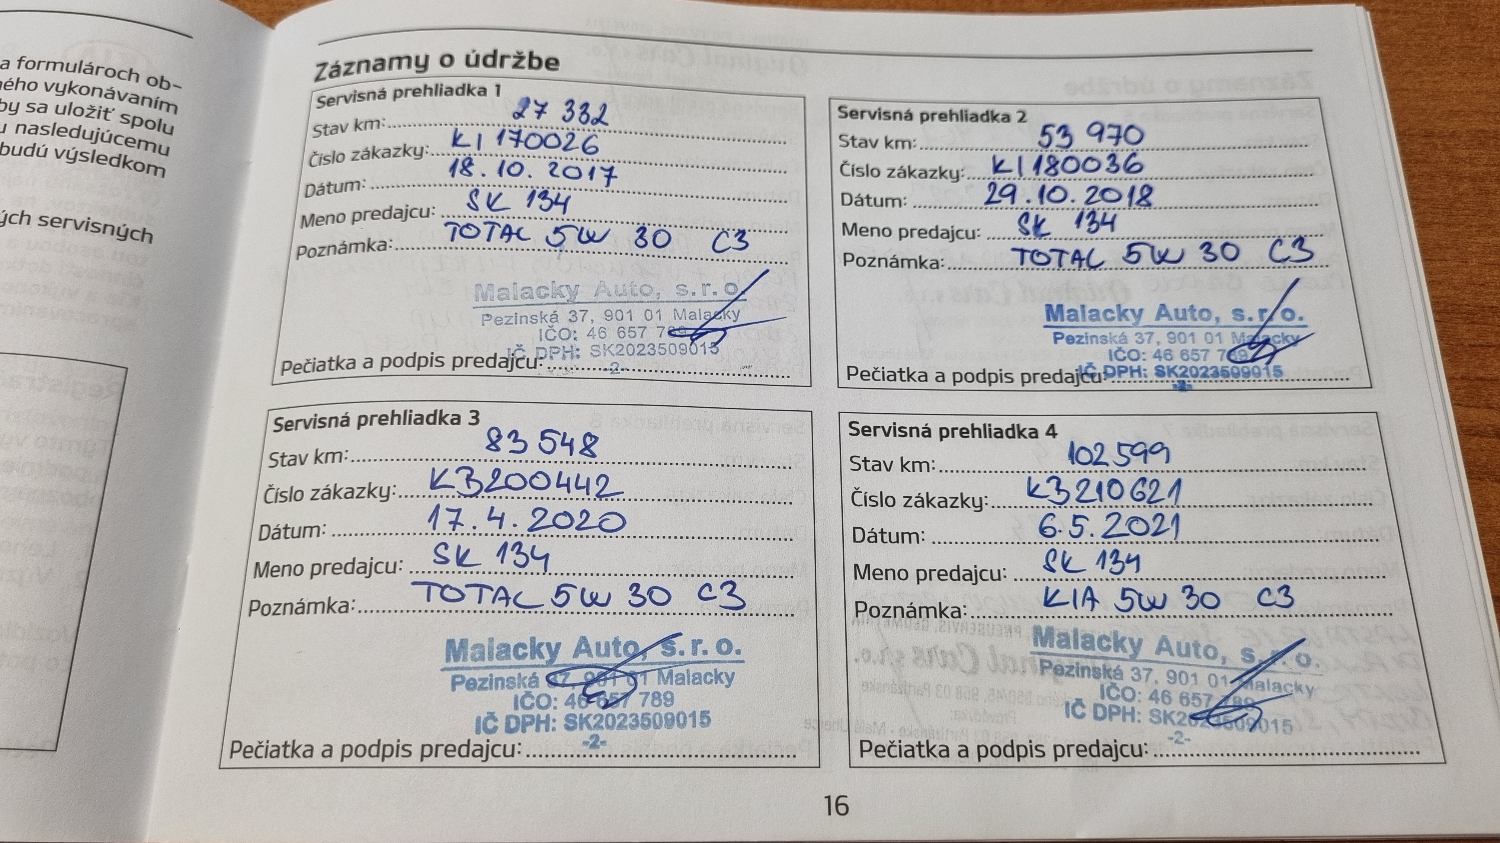 a formulároch ob-
ného vykonávaním
by sa uložiť spolu
u nasledujúcemu
budú výsledkom
ých servisných
Záznamy o údržbe
Servisná prehliadka 1
Stav km: 27 332
Číslo zákazky: K1170026
Dátum: 18.10.2017
Meno predajcu: SK 134
Poznámka: TOTAL 5W 30 C3
Malacky Auto, s.r.o.
Pezinská 37, 901 01 Malacky
IČO: 46 657 789
IČ DPH: SK2023509015
-2-
Pečiatka a podpis predajcu:
Servisná prehliadka 2
Stav km: 53 970
Číslo zákazky: K1180036
Dátum: 29.10.2018
Meno predajcu: SK 134
Poznámka: TOTAL 5W 30 C3
Malacky Auto, s.r.o.
Pezinská 37, 901 01 Malacky
IČO: 46 657 789
IČ DPH: SK2023509015
-2-
Pečiatka a podpis predajcu:
Servisná prehliadka 3
Stav km: 83 548
Číslo zákazky: K3200442
Dátum: 17.4.2020
Meno predajcu: SK 134
Poznámka: TOTAL 5W 30 C3
Malacky Auto, s.r.o.
Pezinská 37, 901 01 Malacky
IČO: 46 657 789
IČ DPH: SK2023509015
-2-
Pečiatka a podpis predajcu:
Servisná prehliadka 4
Stav km: 102 599
Číslo zákazky: K3210621
Dátum: 6.5.2021
Meno predajcu: SK 134
Poznámka: KIA 5W 30 C3
Malacky Auto, s.r.o.
Pezinská 37, 901 01 Malacky
IČO: 46 657 789
IČ DPH: SK2023509015
-2-
Pečiatka a podpis predajcu:
16